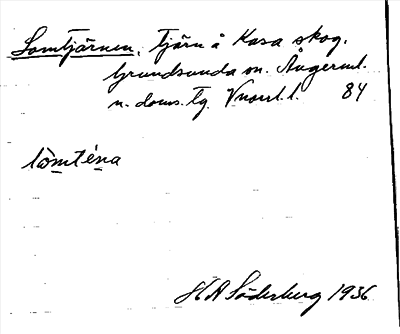 Lomtjärnen. Tjärn å Kasa skog.
Grundsunda sn. Ångerml.
n. doms. tg. Vnorrl. l. 84
lòmte̱ṉa
H A Söderberg 1936